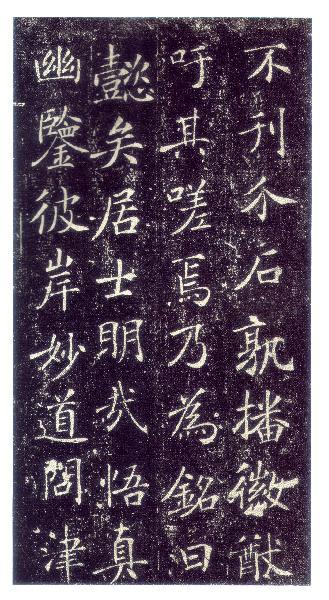 不刊介石孰播徽猷
吁其嗟焉乃為銘曰
懿矣居士明哉悟真
幽鑒彼岸妙道問津